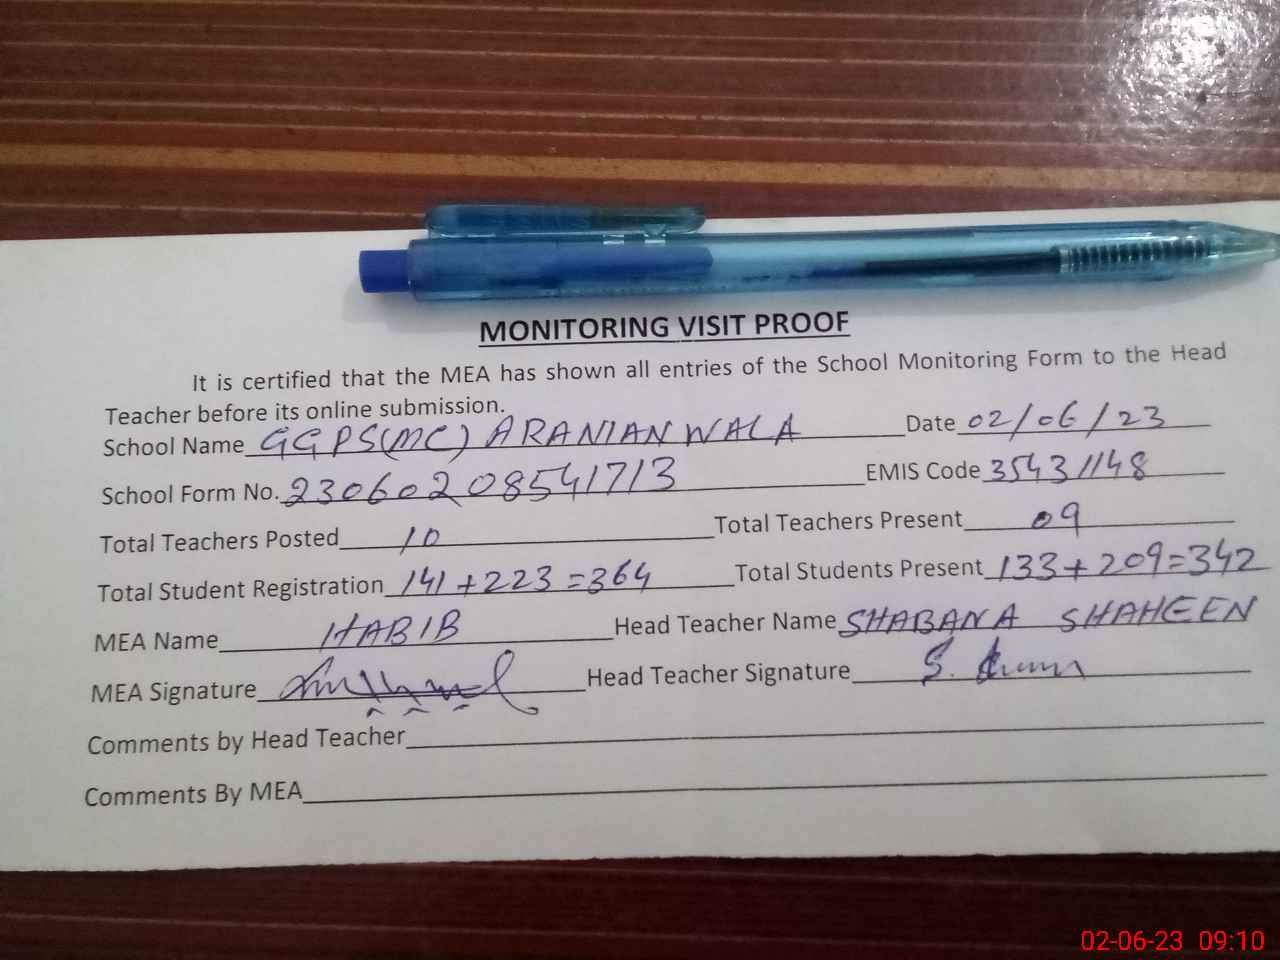 MONITORING VISIT PROOF
It is certified that the MEA has shown all entries of the School Monitoring Form to the Head
Teacher before its online submission.
School Name GGPS(MC) ARANIANWALA Date 02/06/23
School Form No. 23060208541713 EMIS Code 35431148
Total Teachers Posted 10 Total Teachers Present 09
Total Student Registration 141+223=364 Total Students Present 133+209=342
MEA Name HABIB Head Teacher Name SHABANA SHAHEEN
MEA Signature Head Teacher Signature S.
Comments by Head Teacher
Comments By MEA
02-06-23 09:10